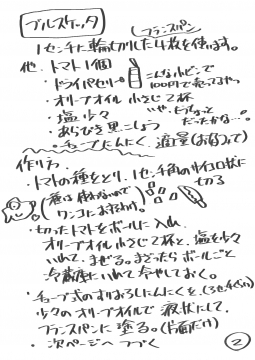 ブルスケッタ
(フランスパン
1センチに輪切りした4枚を使います。
他. トマト1個
・ドライパセリ
こんな小ビンで
100円で売ってるやつ
・オリーブオイル 小さじ2杯
・塩 少々
・あらびき黒こしょう
・チューブにんにく. 適量(お好みで)
作り方
・トマトの種をとり、1センチ角のサイコロ状に
切る
(種は使わないので
ワンコにおすそわけ。)
・切ったトマトをボールに入れ
オリーブオイル小さじ2杯と、塩を少々
いれて、まぜる。まざったらボールごと
冷蔵庫にいれて冷やしておく。
・チューブ式のすりおろしにんにくを、
少々のオリーブオイルで液状にして、
フランスパンに塗る。(片面だけ)
・次ページへつづく
②